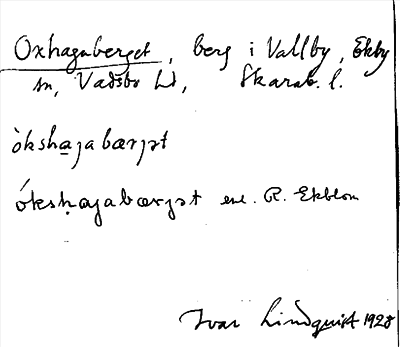 Oxhagaberget, berg i Vallby, Ekby
sn, Vadsbo hd, Skarab. l.
òkshaʒabærʒət
óksḥaʒabærʒət enl. R. Ekblom
Ivar Lindquist 1928